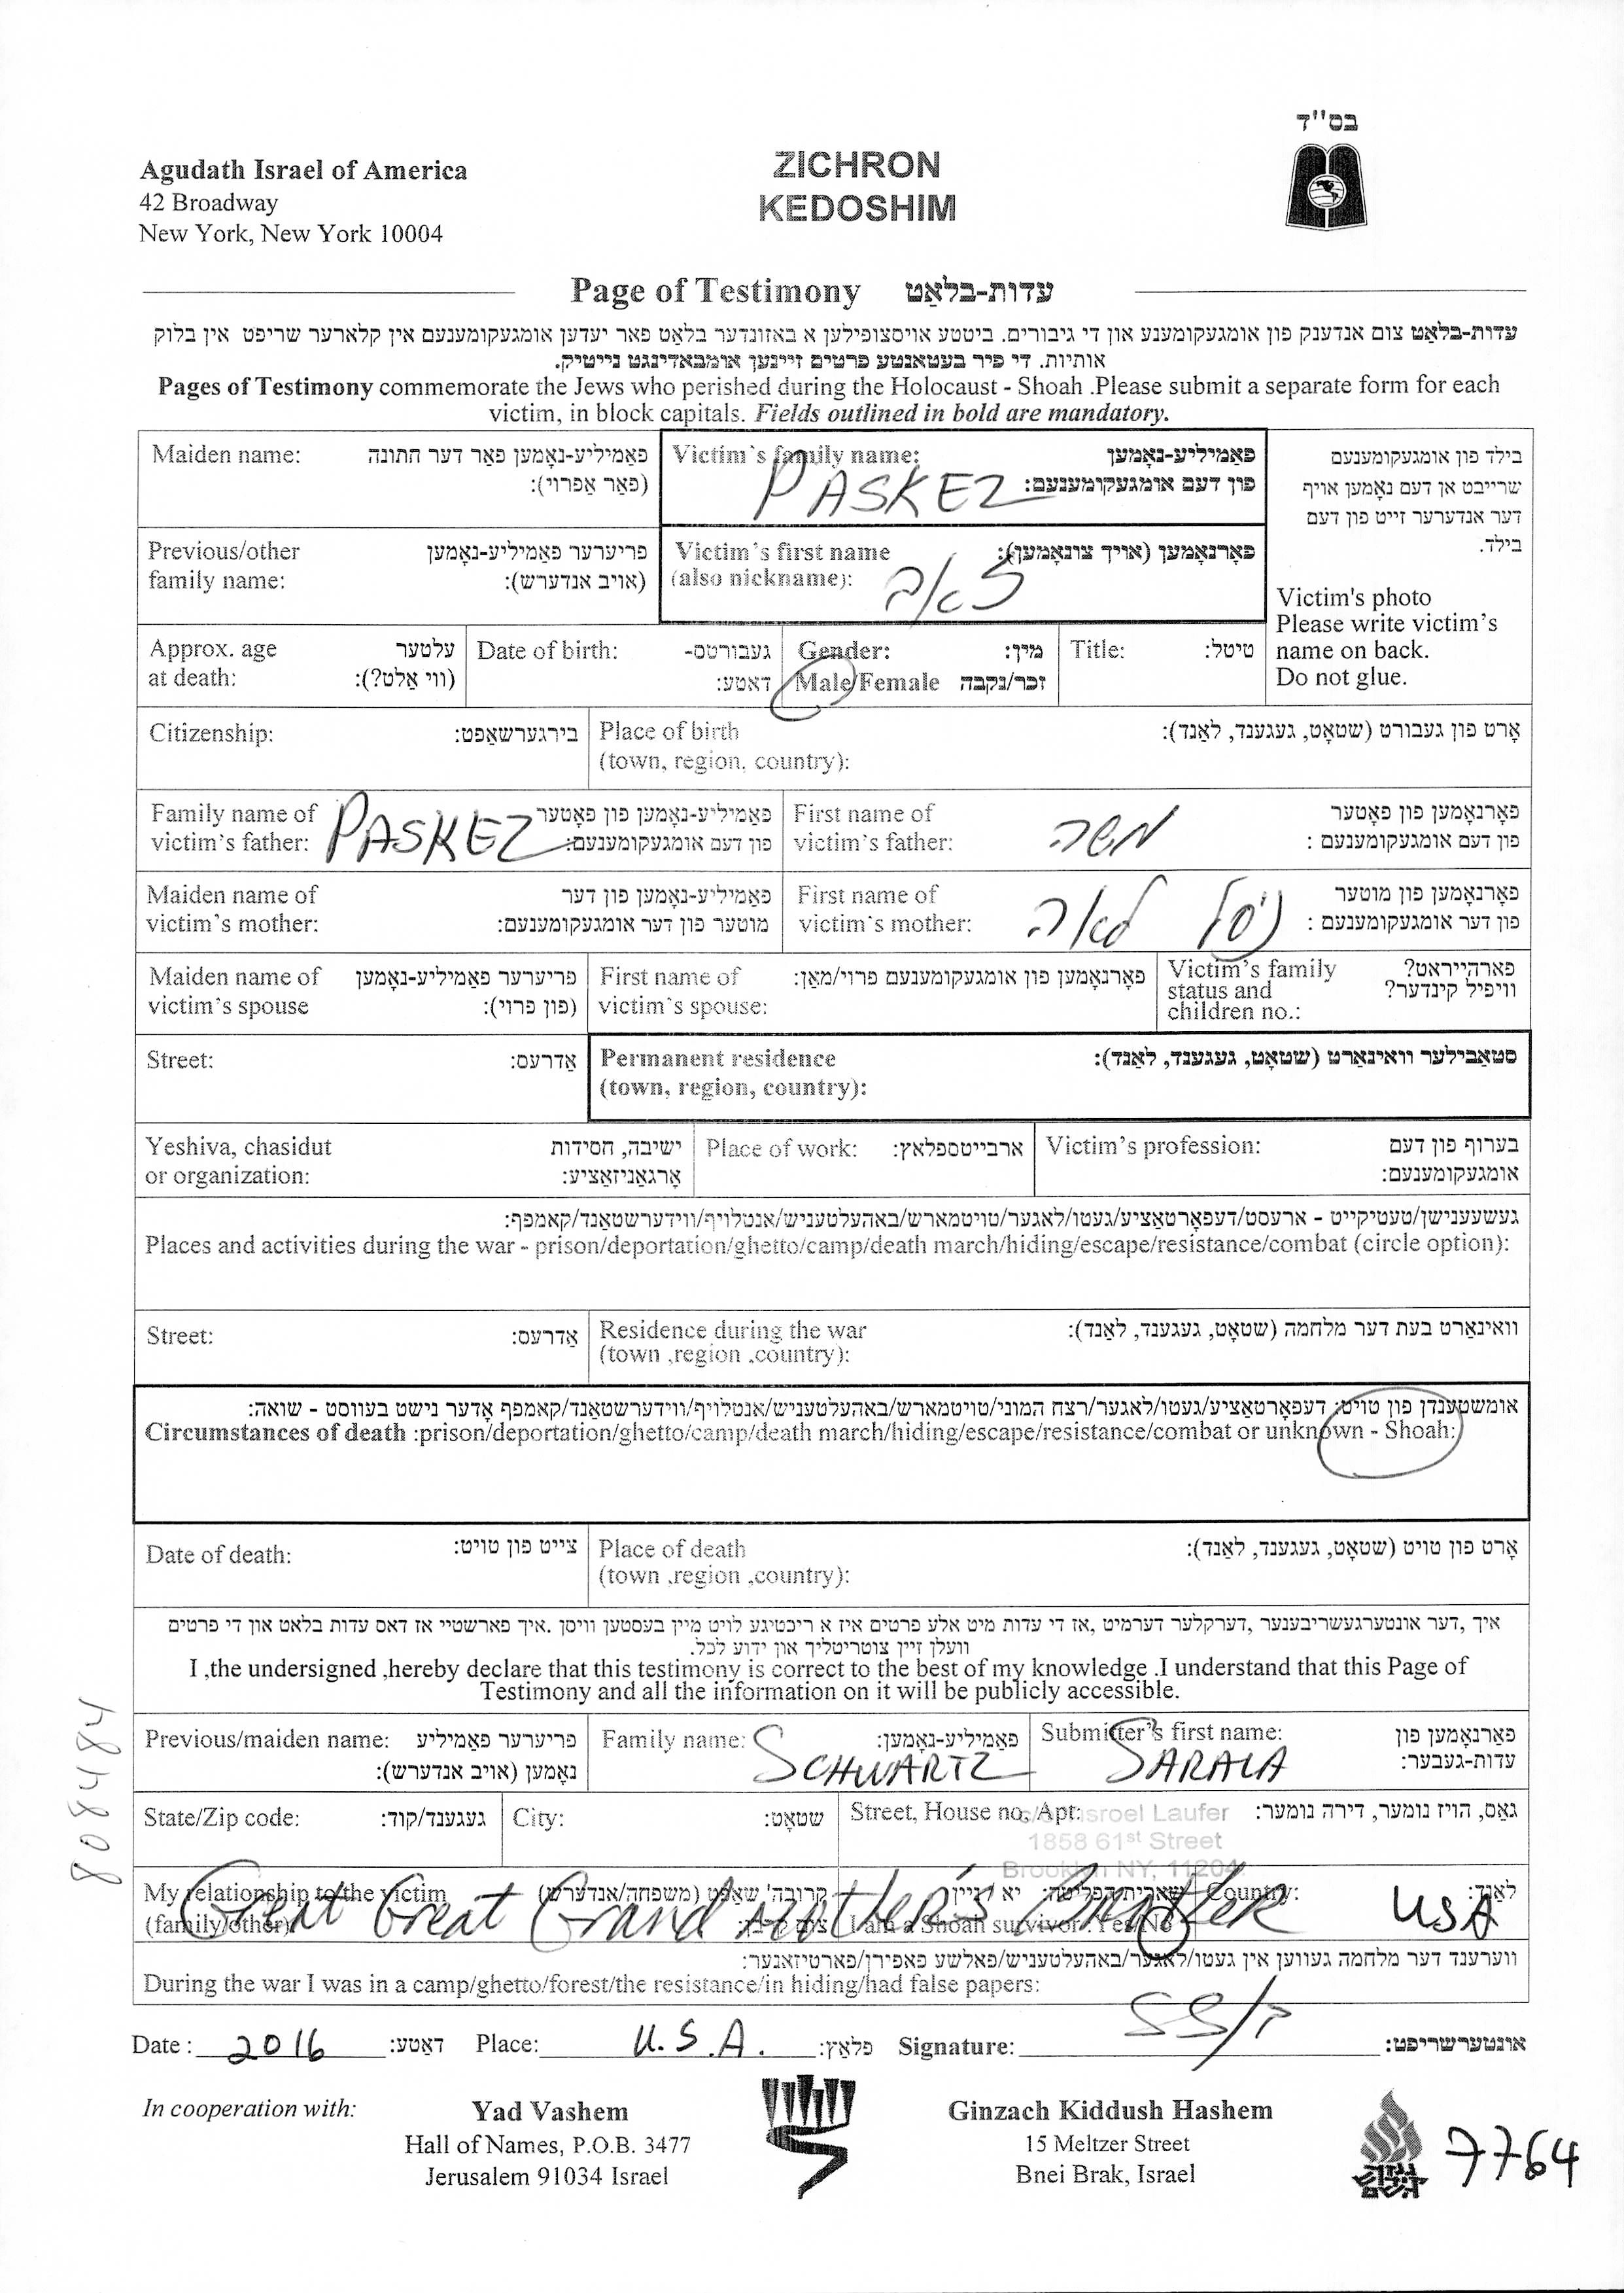 בס"ד
Agudath Israel of America
42 Broadway
New York, New York 10004
ZICHRON
KEDOSHIM
Page of Testimony עדות-בלאַט
עדות-בלאַט צום אנדענק פון אומגעקומענע און די גיבורים. ביטטע אויסצופילען א באזונדער בלאט פאר יעדען אומגעקומענעם אין קלארער שריפט אין בלוק
אותיות. די פיר בעטאנטע פרטים זיינען אומבאדינגט נייטיק.
Pages of Testimony commemorate the Jews who perished during the Holocaust - Shoah .Please submit a separate form for each
victim, in block capitals. Fields outlined in bold are mandatory.
Maiden name: פאַמיליע-נאָמען פאר דער חתונה
(פאַר אַפרוי):
Victim's family name: פאַמיליע-נאָמען
פון דעם אומגעקומענעם:
PASKEZ
בילד פון אומגעקומענעם
שרייבט אן דעם נאָמען אויף
דער אנדערער זייט פון דעם
בילד.
Victim's photo
Please write victim's
name on back.
Do not glue.
Previous/other פריערער פאַמיליע-נאָמען
family name: (אויב אנדערש):
Victim's first name פאָרנאָמען (אויך צונאָמען):
(also nickname):
Approx. age עלטער
at death: (ווי אַלט?):
Date of birth: געבורטס-
דאַטע:
Gender: מין:
Male/Female זכר/נקבה
Title: טיטל:
Citizenship: בירגערשאַפט:
Place of birth אָרט פון געבורט (שטאָט, געגענד, לאַנד):
(town, region, country):
Family name of פאַמיליע-נאָמען פון פאָטער
victim's father: פון דעם אומגעקומענעם:
PASKEZ
First name of פאָרנאָמען פון פאָטער
victim's father: פון דעם אומגעקומענעם :
משה
Maiden name of פאַמיליע-נאָמען פון דער
victim's mother: מוטער פון דער אומגעקומענעם:
First name of פאָרנאָמען פון מוטער
victim's mother: פון דער אומגעקומענעם :
לאה
Maiden name of פריערער פאַמיליע-נאָמען
victim's spouse (פון פרוי):
First name of פאָרנאָמען פון אומגעקומענעם פרוי/מאַן:
victim's spouse:
Victim's family פארהייראט?
status and וויפיל קינדער?
children no.:
Street: אַדרעס:
Permanent residence סטאַבילער וואינארט (שטאָט, געגענד, לאַנד):
(town, region, country):
Yeshiva, chasidut ישיבה, חסידות
or organization: אָרגאַניזאַציע:
Place of work: ארבייטספלאץ:
Victim's profession: בערוף פון דעם
אומגעקומענעם:
געשעענישן/טעטיקייט - ארעסט/דעפּאָרטאַציע/געטו/לאגער/טויטמארש/באהעלטעניש/אנטלויף/ווידערשטאַנד/קאמפף:
Places and activities during the war - prison/deportation/ghetto/camp/death march/hiding/escape/resistance/combat (circle option):
Street: אַדרעס:
Residence during the war וואינארט בעת דער מלחמה (שטאָט, געגענד, לאַנד):
(town ,region ,country):
אומשטענדן פון טויט: דעפּאָרטאַציע/געטו/לאגער/רצח המוני/טויטמארש/באהעלטעניש/אנטלויף/ווידערשטאַנד/קאמפף אָדער נישט בעווסט - שואה:
Circumstances of death :prison/deportation/ghetto/camp/death march/hiding/escape/resistance/combat or unknown - Shoah:
Date of death: צייט פון טויט:
Place of death אָרט פון טויט (שטאָט, געגענד, לאַנד):
(town ,region ,country):
איך ,דער אונטערגעשריבענער ,דערקלער דערמיט ,אז די עדות מיט אלע פרטים איז א ריכטיגע לויט מיין בעסטען וויסן .איך פארשטיי אז דאס עדות בלאט און די פרטים
וועלן זיין צוטריטליך און ידוע לכל.
I ,the undersigned ,hereby declare that this testimony is correct to the best of my knowledge .I understand that this Page of
Testimony and all the information on it will be publicly accessible.
Previous/maiden name: פריערער פאַמיליע
נאָמען (אויב אנדערש):
Family name: פאַמיליע-נאָמען:
SCHWARTZ
Submitter's first name: פאָרנאָמען פון
עדות-געבער:
SARALA
State/Zip code: געגענד/קוד:
City: שטאָט:
Street, House no, Apt: גאַס, הויז נומער, דירה נומער:
Isroel Laufer
1858 61st Street
Brooklyn NY, 11204
My relationship to the victim קרובה'שאַפט (משפחה/אנדערש)
(family/other)
I am a Shoah survivor: Yes/No
Country: לאַנד:
Great Great Grand Mother's Brother USA
ווערענד דער מלחמה געווען אין געטו/לאגער/באהעלטעניש/פאלשע פאפירן/פארטיזאנער:
During the war I was in a camp/ghetto/forest/the resistance/in hiding/had false papers:
Date : 2016 דאַטע: Place: U.S.A. פלאַץ: Signature: אונטערשריפט:
In cooperation with:
Yad Vashem
Hall of Names, P.O.B. 3477
Jerusalem 91034 Israel
Ginzach Kiddush Hashem
15 Meltzer Street
Bnei Brak, Israel
7764
808484